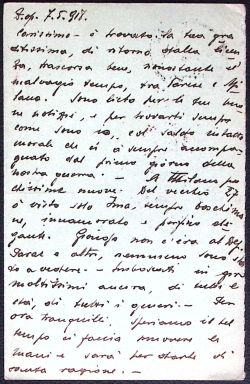 7.5.918.
Carissimo - è trovato la tua gra
ditissima, di ritorno dalla licen
za, trascorsa bene, nonostante il
malvagio tempo, tra Torino e Mi
lano. Sono lieto per le tue buo
ne notizie, e per trovarti sempre
come sono io, col saldo stato
morale che ci à sempre accompa
gnato dal primo giorno della
nostra guerra. - A Milano po
chissime nuove. Del vecchio 27
è visto solo sempre
, innamorato e perfino ele
gante. non c'era al
e altri, nessuno sono
to a vedere. - Imboscati in giro
moltissimi ancora, di tutte le
età, di tutti i generi. - Per
ora tranquilli. Speriamo il bel
tempo ci faccia muovere le
mani e sarà per darle di
santa ragione. -